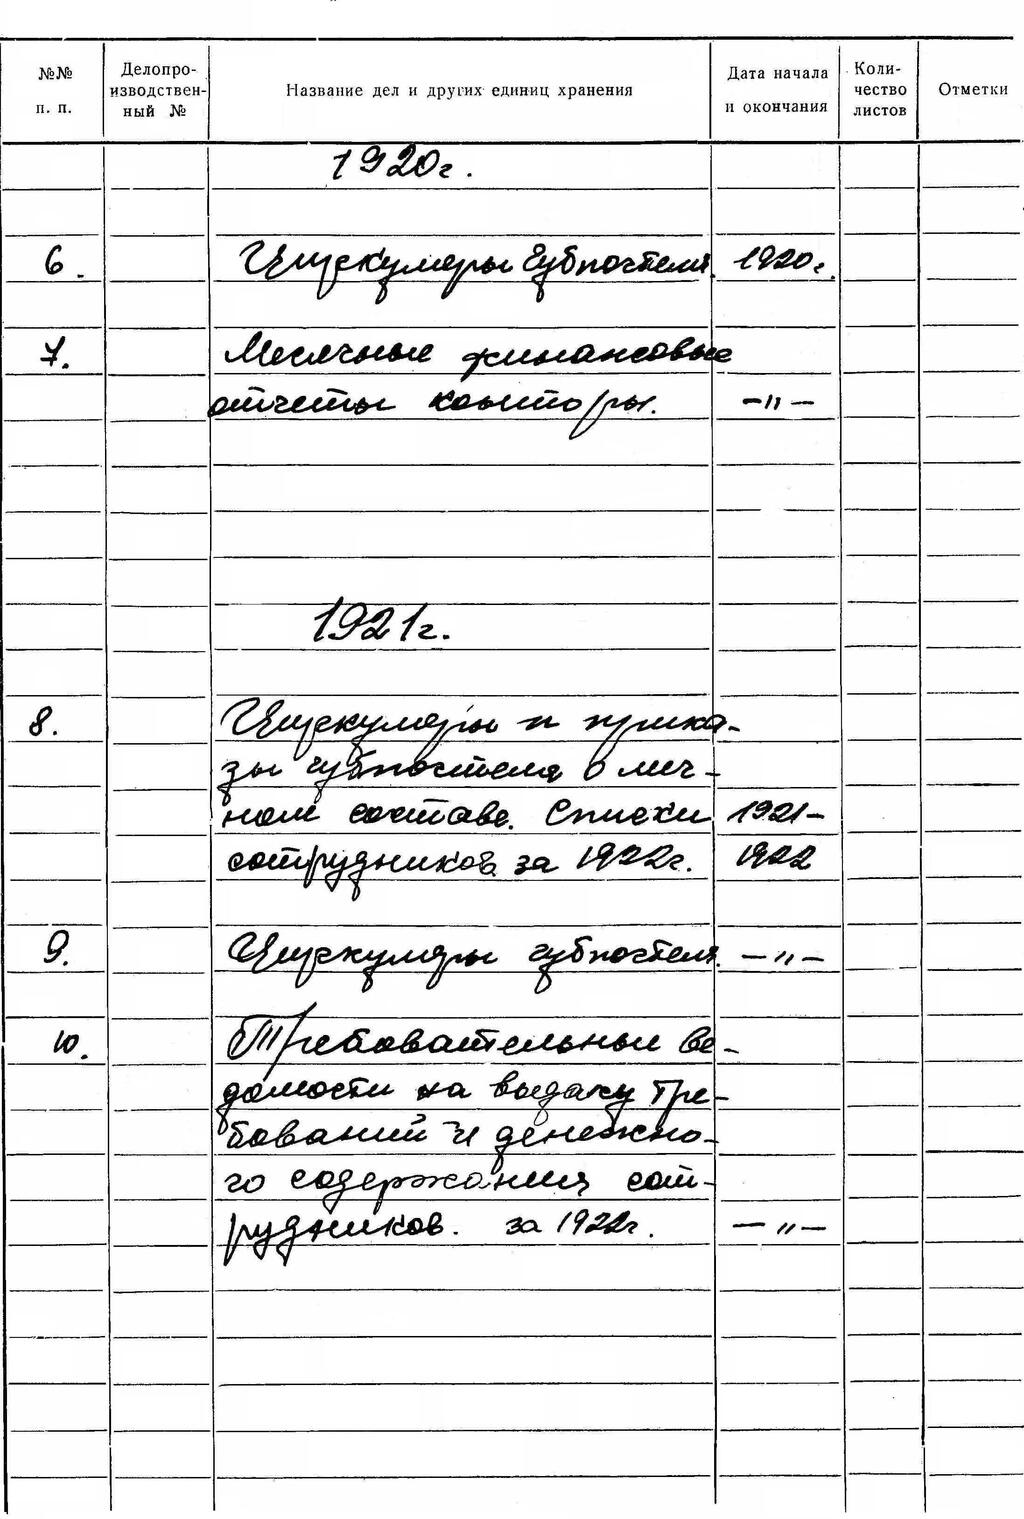 №№ п. п.
Делопро-
изводствен-
ный №
Название дел и других единиц хранения
Дата начала
и окончания
Коли-
чество
листов
Отметки
1920г.
6. Циркуляры Губпочтеля. 1920г.
7. Месячные финансовые
отчеты конторы. —"—
1921г.
8. Циркуляры и прика-
зы губпочтеля о лич-
ном составе. Списки 1921-
сотрудников за 1922г. 1922
9. Циркуляры губпочтеля. —"—
10. Требовательные ве-
домости на выдачу тре-
бований и денежно-
го содержания сот-
рудников. за 1922г. —"—